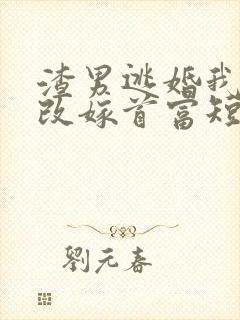 渣男逃婚我
改嫁首富短
劉元春